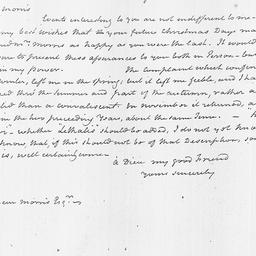 morris
Events interesting to you are not indifferent to me
my best wishes that in your future Christmas Days ma
nd mrs morris as happy as you were the last. It would
me to present these assurances to you both in Person - bu
in my power. The complaint which confin
winter, left me in the Spring; but it left me feeble, and I ha
red thro the summer and part of the autumn, rather a
lid than a convalescent. In november it returned, a
in the two preceding Years, about the same time.
whether "Lethalis" should be added, I do not yet know
know, that, if this should not be of that Description, so
es, will certainly come. -
à Dieu my good Friend
Yours sincerely
morris Esqr.